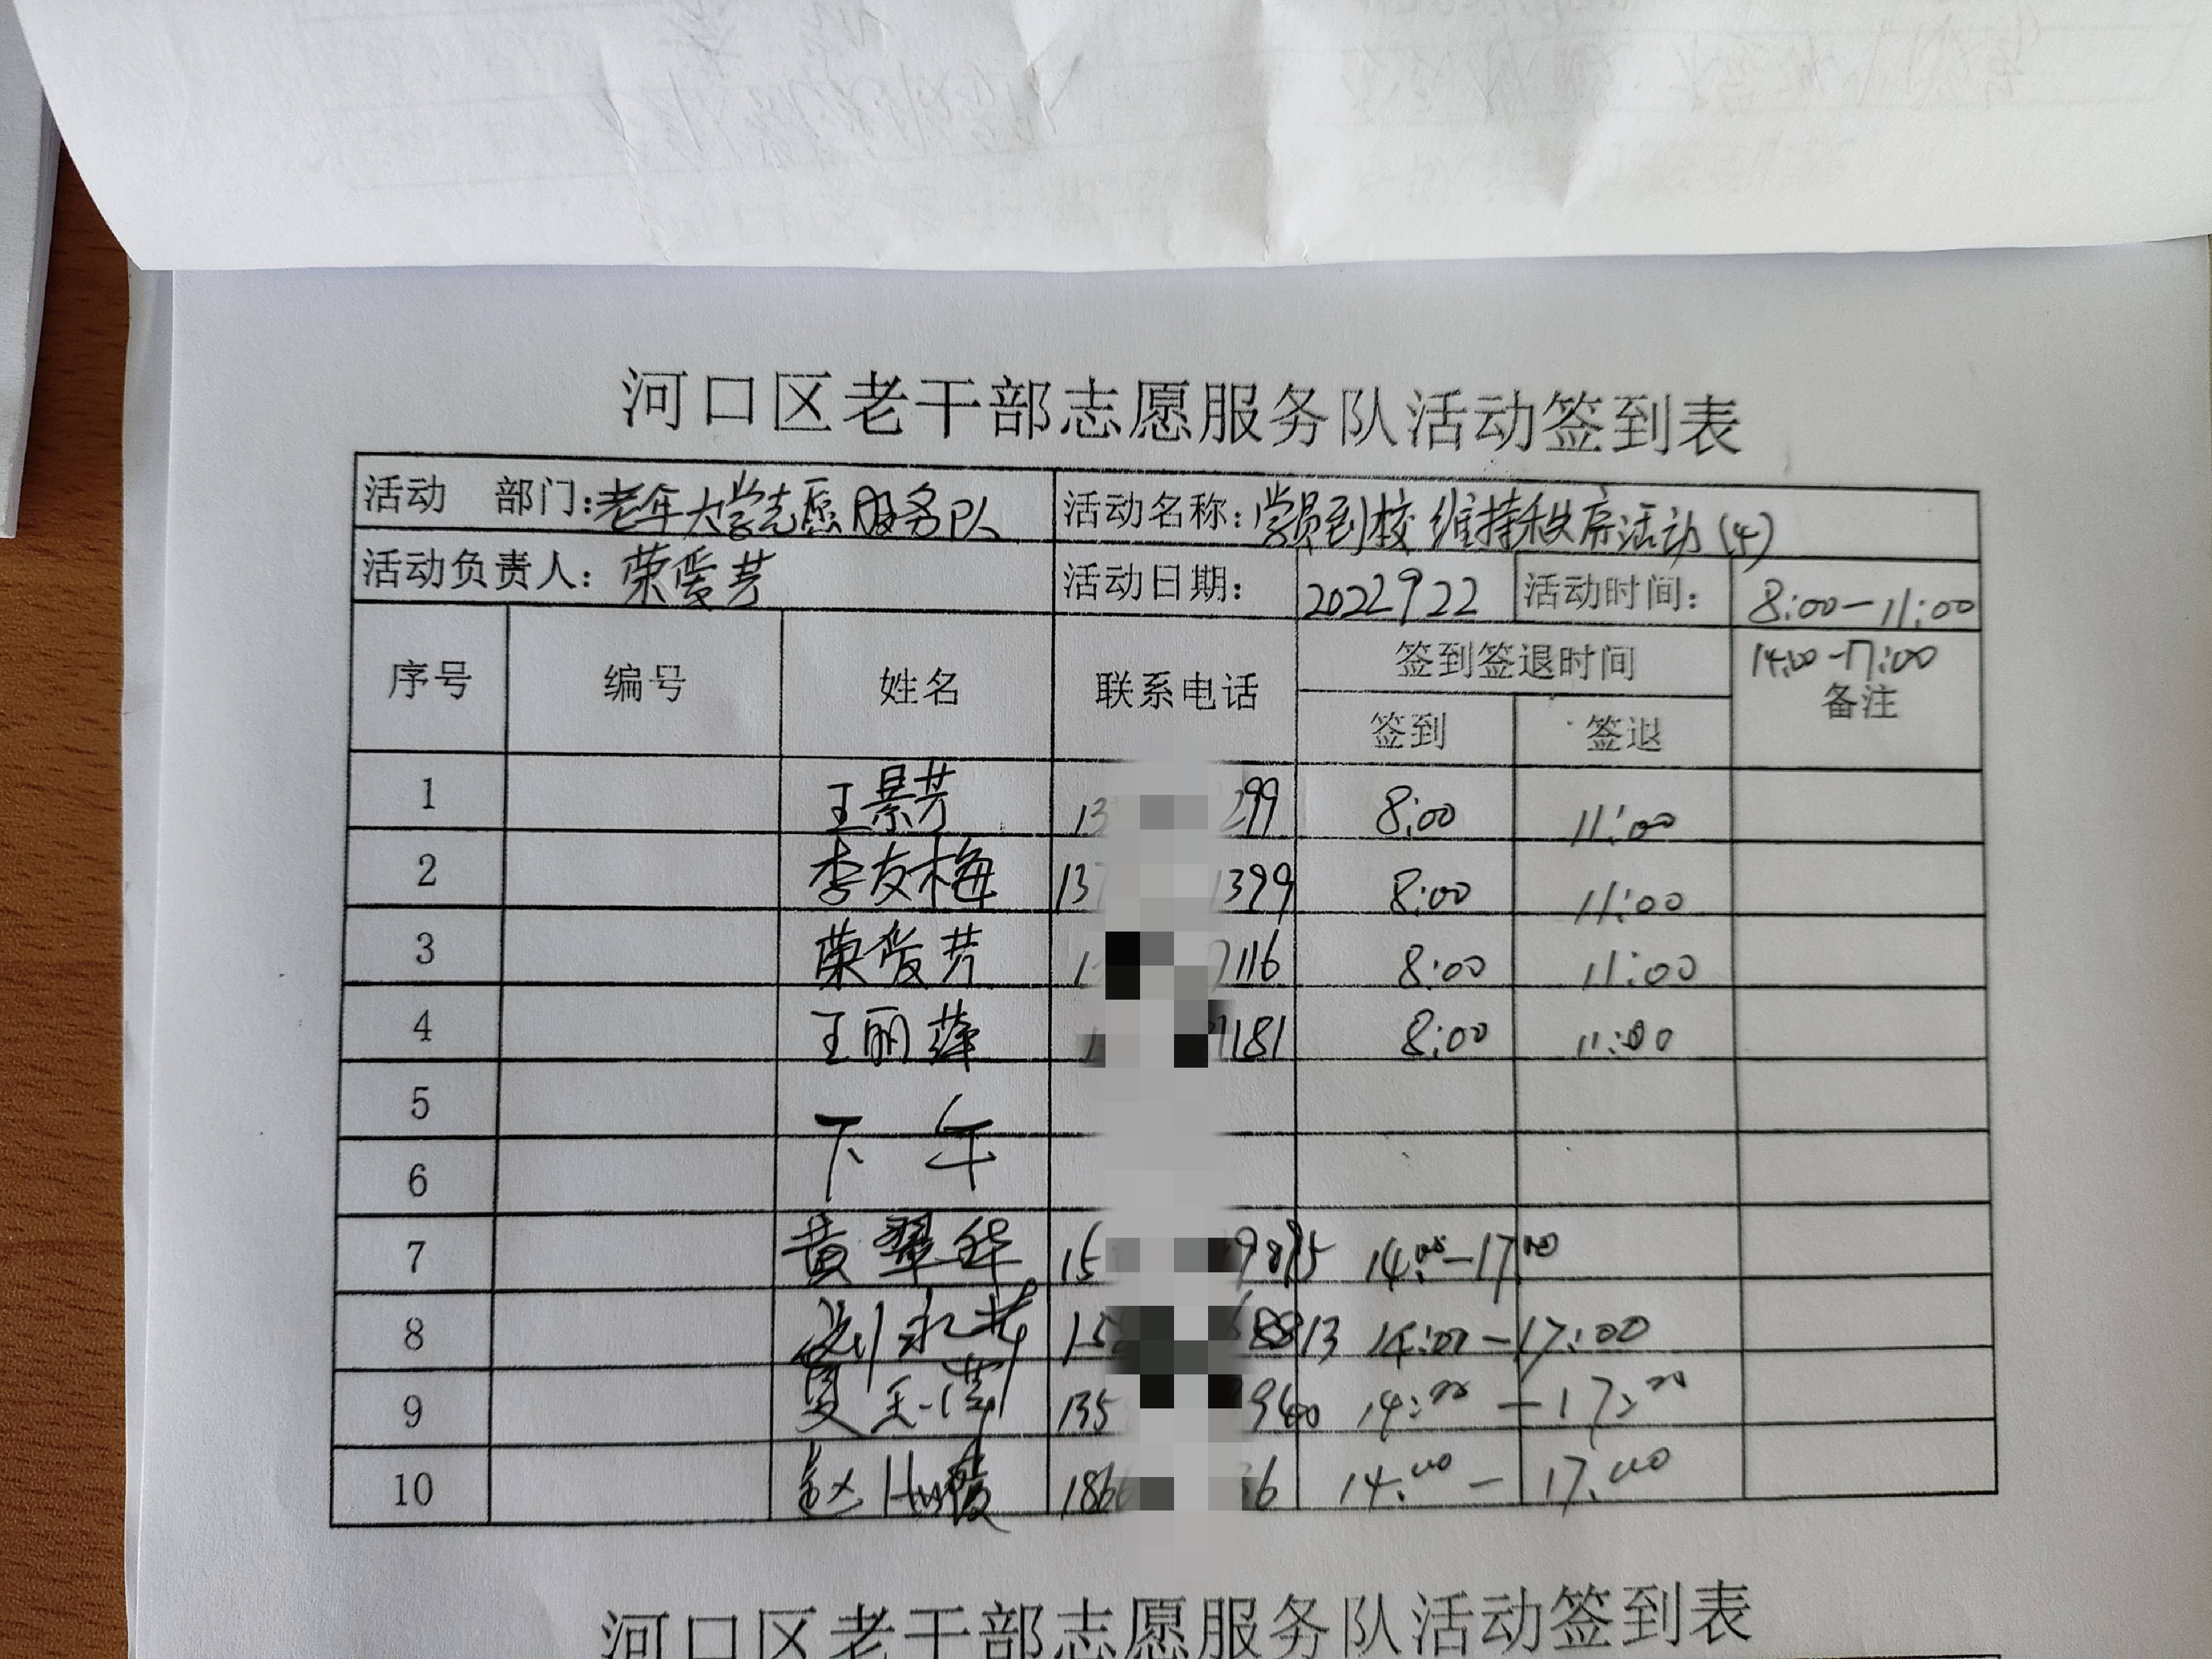 河口区老干部志愿服务队活动签到表
活动 部门:老年大学志愿服务队 活动名称:学员到校维持秩序活动(4)
活动负责人:荣爱芳 活动日期: 2022 9 22 活动时间: 8:00-11:00
序号 编号 姓名 联系电话 签到签退时间 14:00-17:00
备注
签到 签退
1 王景芳 13 299 8:00 11:00
2 李友梅 137 1399 8:00 11:00
3 荣爱芳 1 7116 8:00 11:00
4 王丽萍 1 1181 8:00 11:00
5
下午
6
7 黄翠华 15 9875 14:00-17:00
8 刘永芳 15 8813 14:00-17:00
9 夏玉 135 14:00-17:00
10 赵 186 36 14:00-17:00
河口区老干部志愿服务队活动签到表